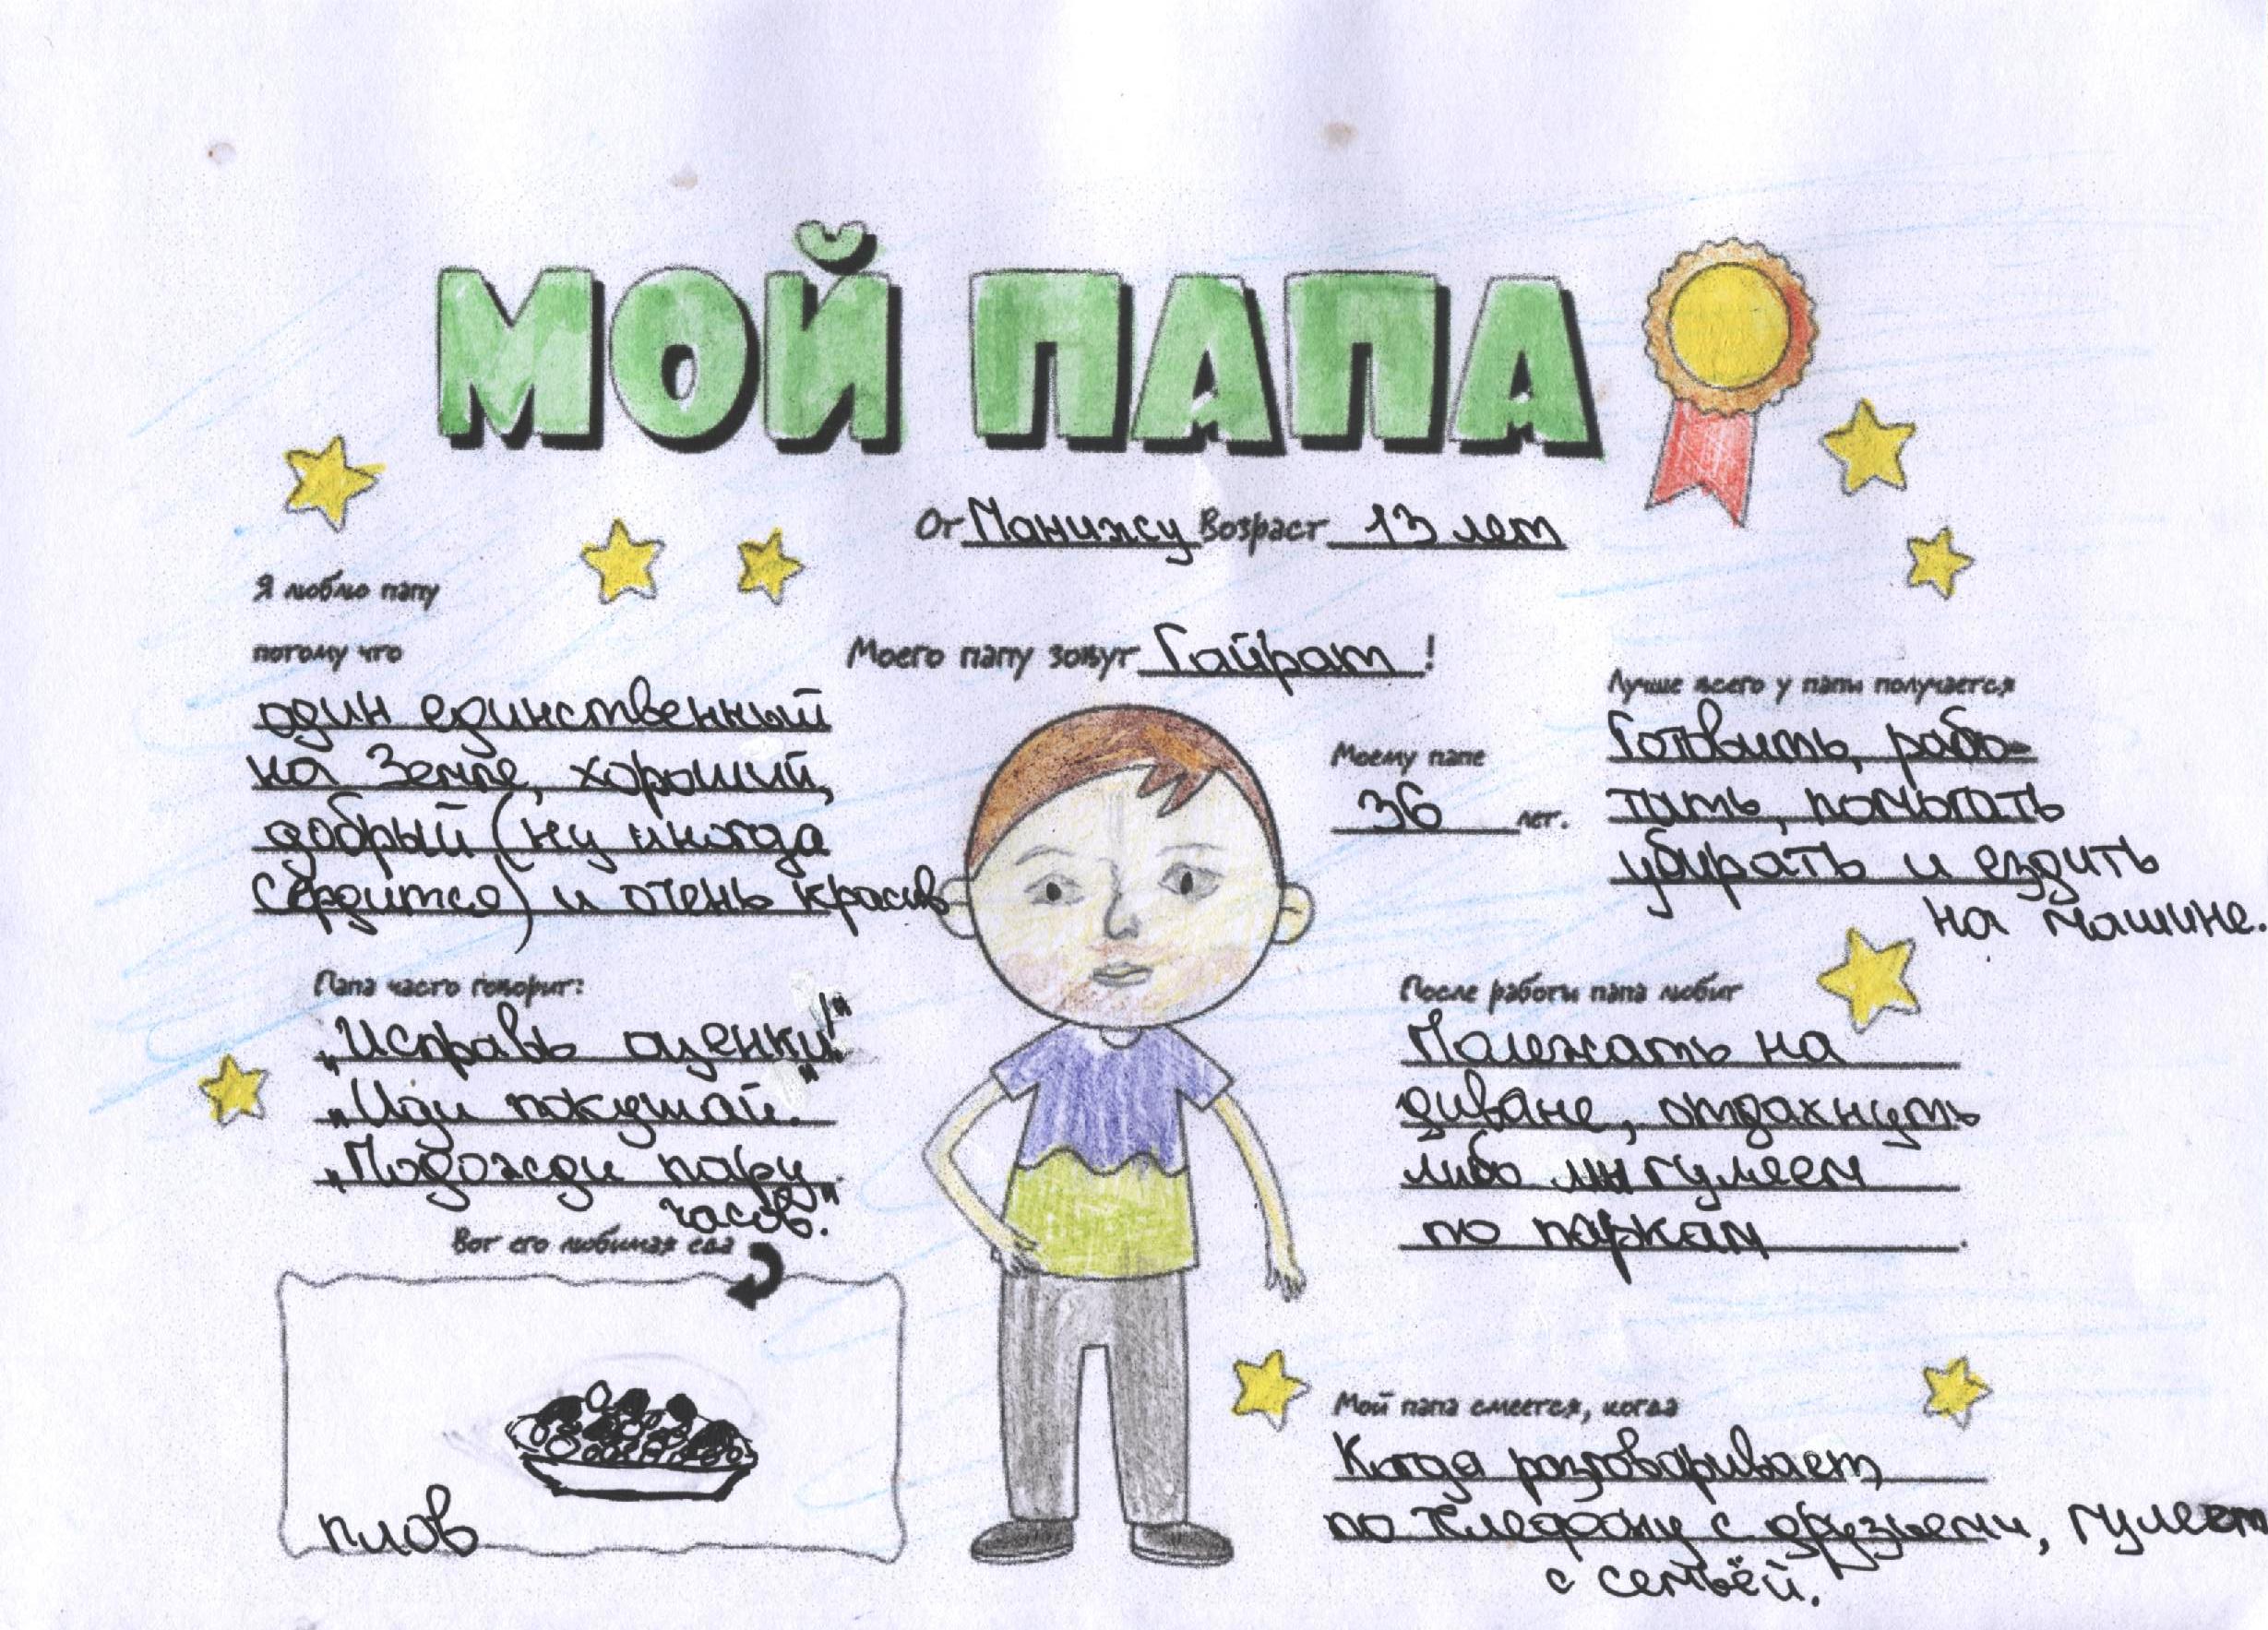 МОЙ ПАПА
От Манижу Возраст 13 лет
Я люблю папу
потому что
один единственный
на Земле, хороший,
добрый (ну иногда
сердится) и очень красив
Моего папу зовут Гайрат !
Моему папе
36 лет.
Лучше всего у папы получается
Готовить, рабо-
тать, помогать
убирать и ездить
на машине.
Папа часто говорит:
„Исправь оценки!"
„Иди покушай."
„Подожди пару
часов."
После работы папа любит
Полежать на
диване, отдахнуть
либо мы гуляем
по паркам .
Вот его любимая еда
плов
Мой папа смеется, когда
Когда разговаривает
по телефону с друзьями, гуляет
с семьёй.